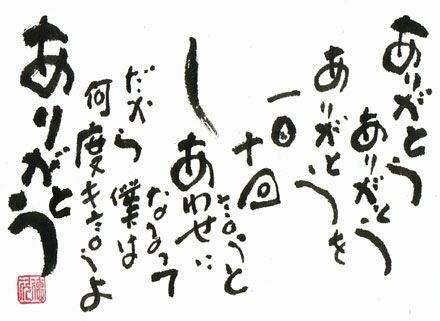 ありがとう
ありがとう
ありがとうを
一回
十回
言うと
しあわせに
なるって
だから僕は
何度も言うよ
ありがとう